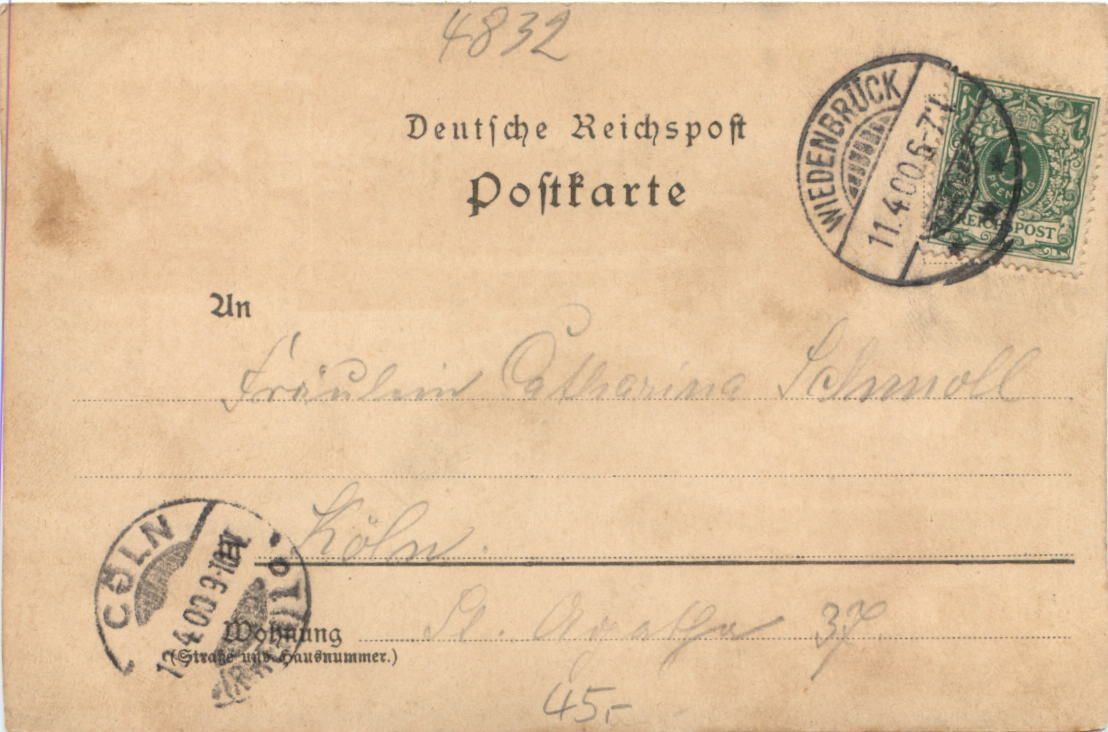 4832
Deutsche Reichspost
Postkarte
WIEDENBRÜCK
11.4.00.6-7N
PFENNIG
REICHSPOST
An
Fräulein Catharina Schmoll
Köln.
CÖLN
12.4.00 9-10
Wohnung
(Straße und Hausnummer.)
St. Agatha 37.
45,-